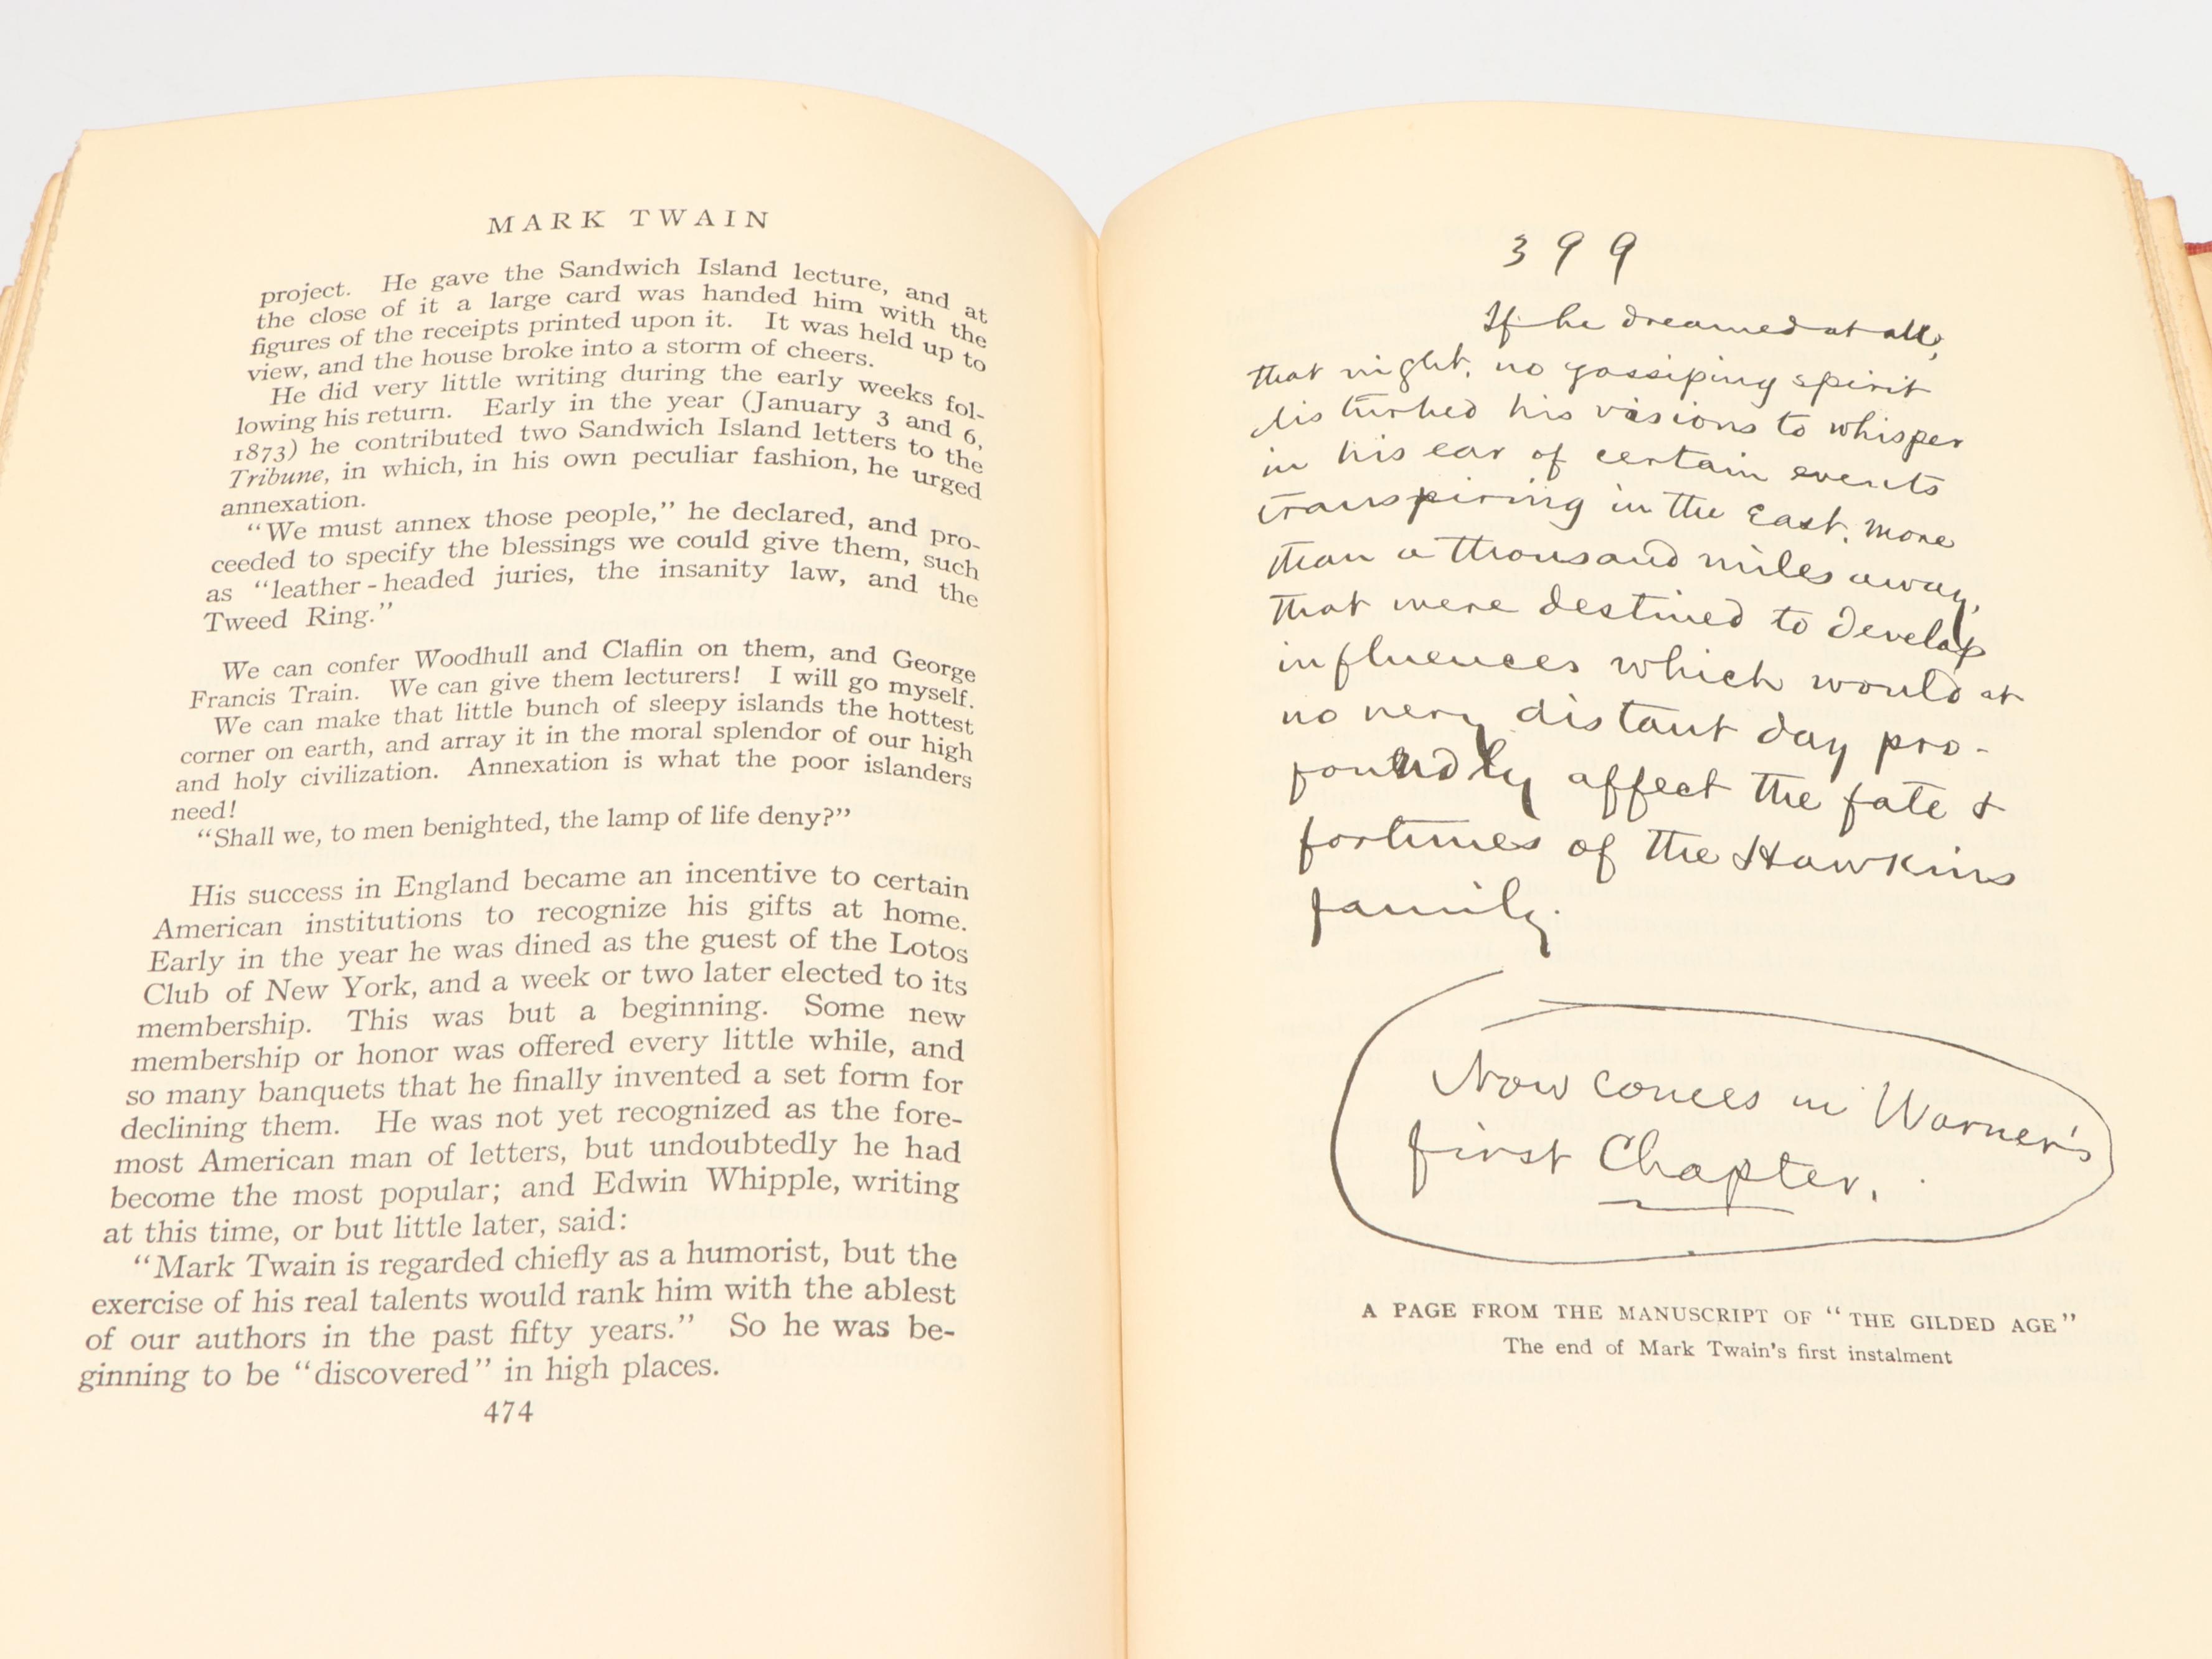 MARK TWAIN
project. He gave the Sandwich Island lecture, and at
the close of it a large card was handed him with the
figures of the receipts printed upon it. It was held up to
view, and the house broke into a storm of cheers.
He did very little writing during the early weeks fol-
lowing his return. Early in the year (January 3 and 6,
1873) he contributed two Sandwich Island letters to the
Tribune, in which, in his own peculiar fashion, he urged
annexation.
“We must annex those people,” he declared, and pro-
ceeded to specify the blessings we could give them, such
as “leather-headed juries, the insanity law, and the
Tweed Ring.”
We can confer Woodhull and Claflin on them, and George
Francis Train. We can give them lecturers! I will go myself.
We can make that little bunch of sleepy islands the hottest
corner on earth, and array it in the moral splendor of our high
and holy civilization. Annexation is what the poor islanders
need!
“Shall we, to men benighted, the lamp of life deny?”
His success in England became an incentive to certain
American institutions to recognize his gifts at home.
Early in the year he was dined as the guest of the Lotos
Club of New York, and a week or two later elected to its
membership. This was but a beginning. Some new
membership or honor was offered every little while, and
so many banquets that he finally invented a set form for
declining them. He was not yet recognized as the fore-
most American man of letters, but undoubtedly he had
become the most popular; and Edwin Whipple, writing
at this time, or but little later, said:
“Mark Twain is regarded chiefly as a humorist, but the
exercise of his real talents would rank him with the ablest
of our authors in the past fifty years.” So he was be-
ginning to be “discovered” in high places.
474
399
If he dreamed at all,
that night, no gossiping spirit
disturbed his visions to whisper
in his ear of certain events
transpiring in the East, more
than a thousand miles away,
that were destined to develop
influences which would at
no very distant day pro-
foundly affect the fate &
fortunes of the Hawkins
family.
Now comes in Warner's
first Chapter.
A PAGE FROM THE MANUSCRIPT OF “THE GILDED AGE”
The end of Mark Twain's first instalment